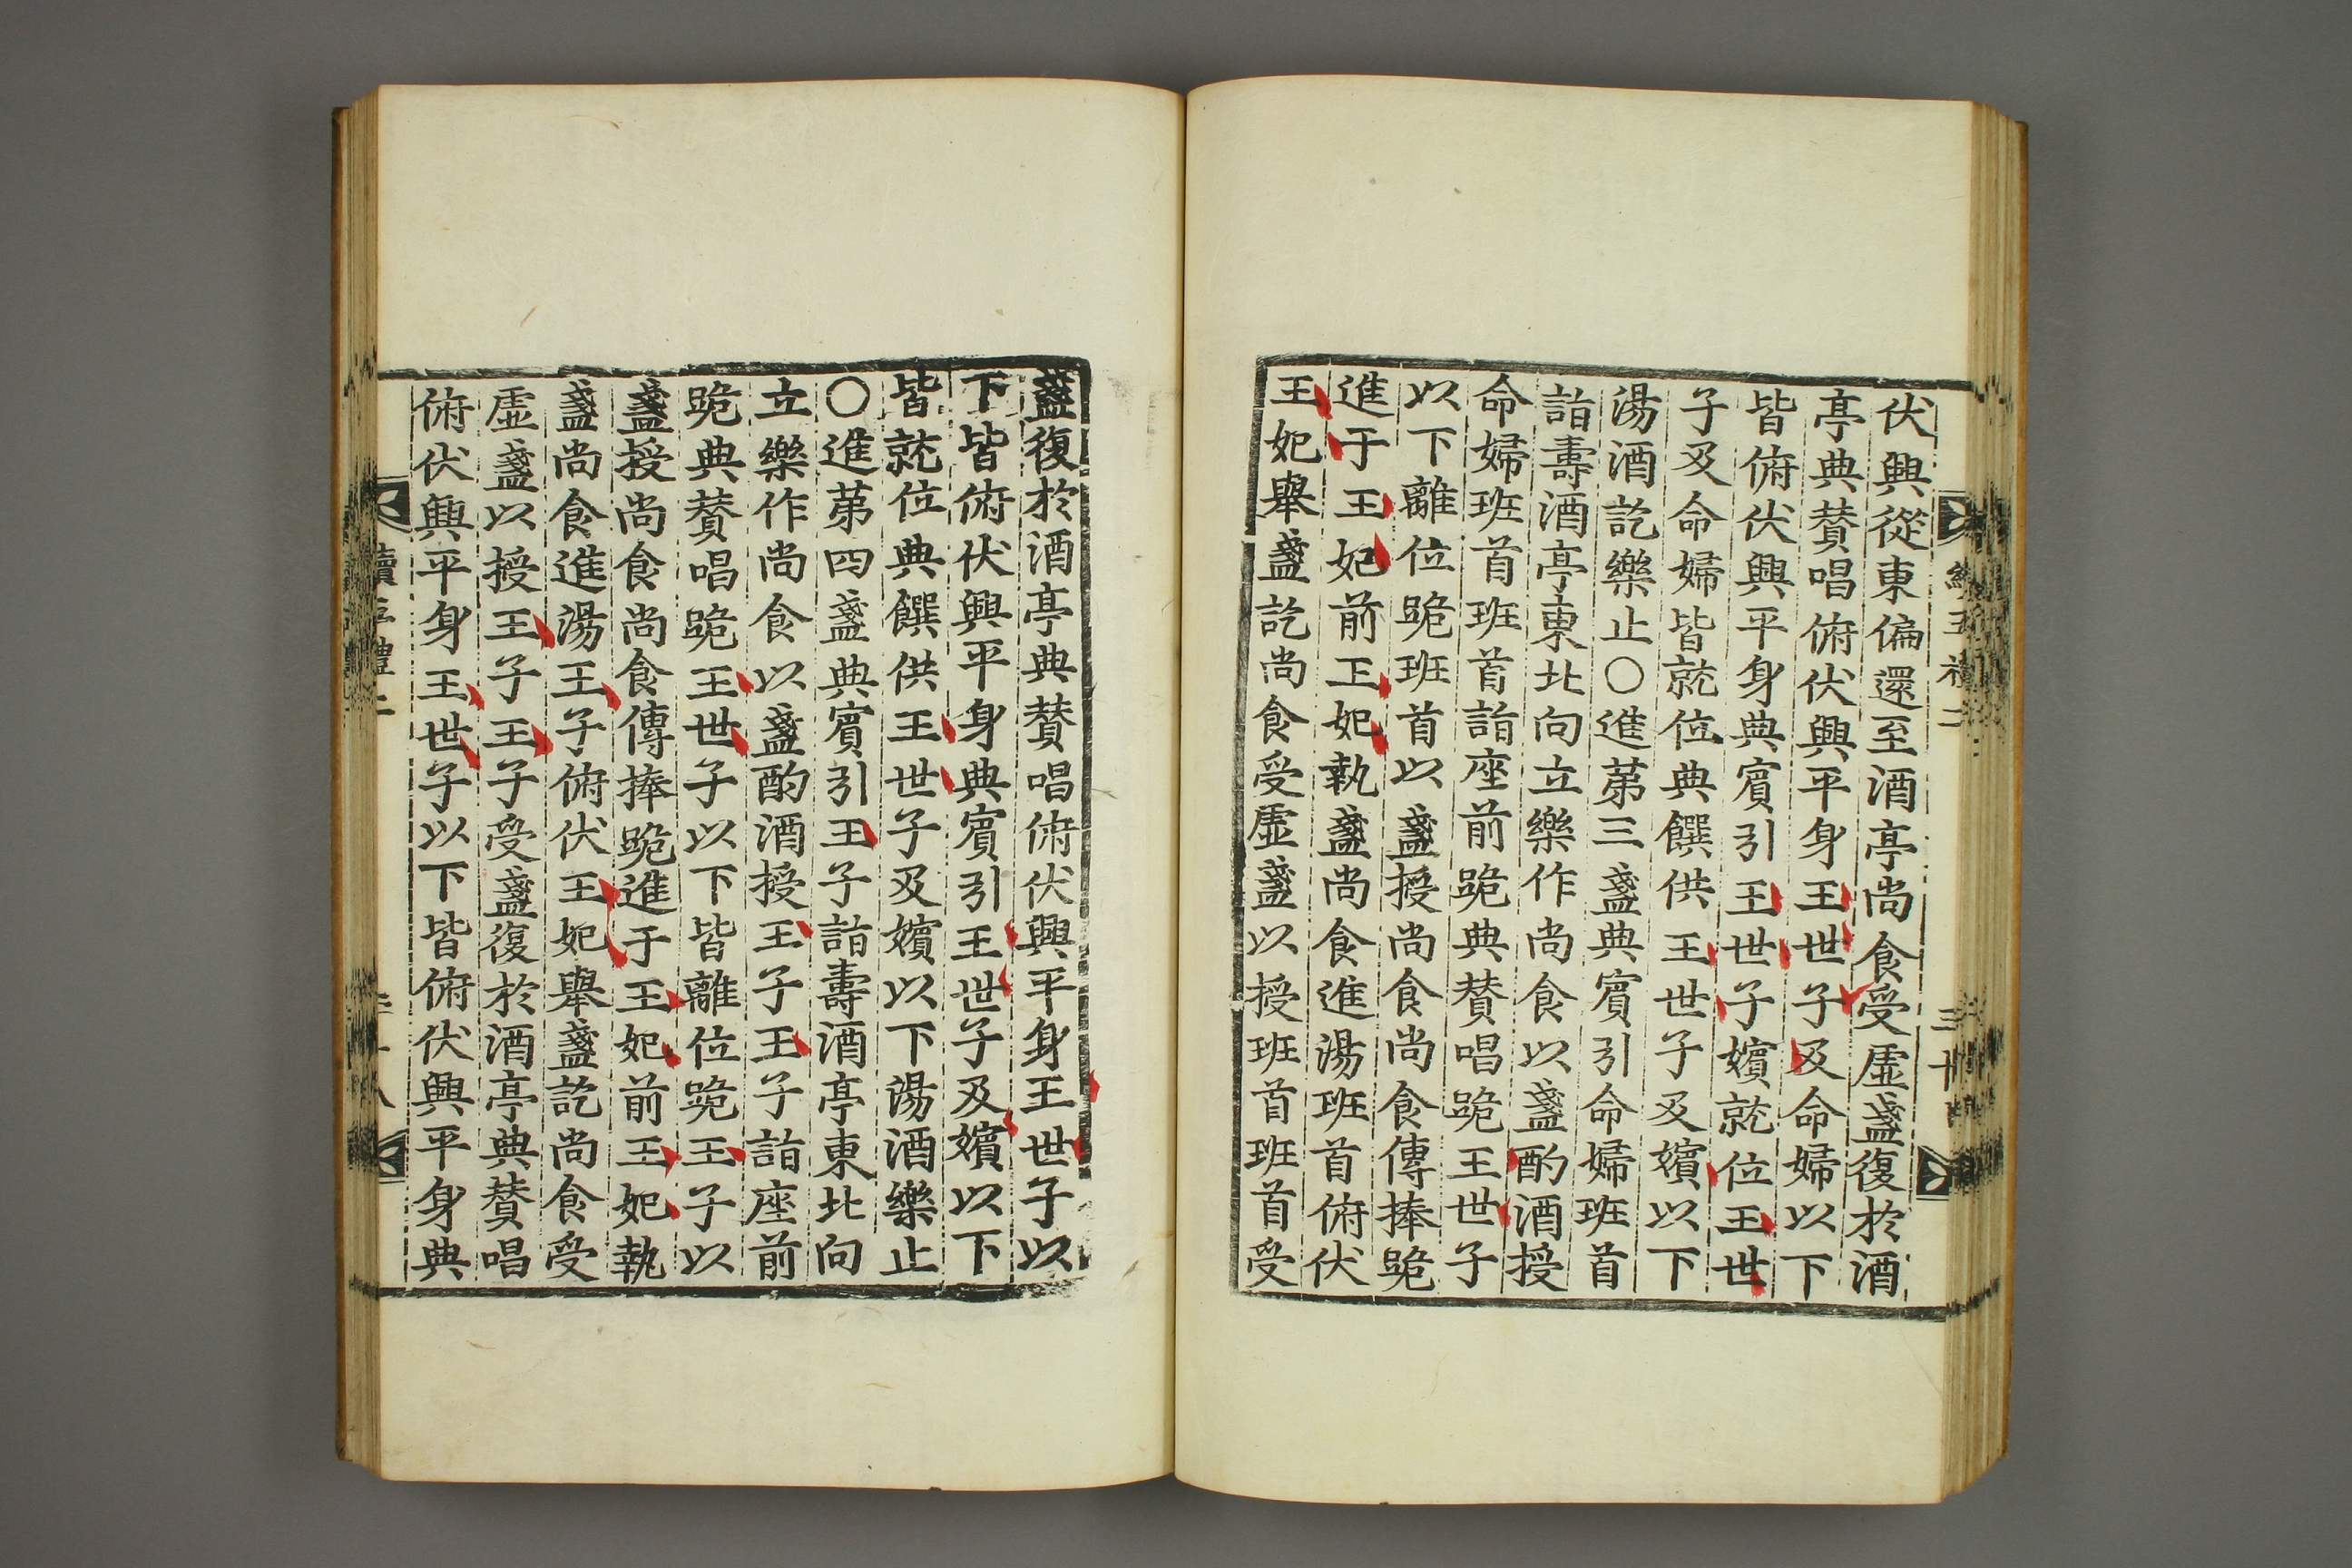 伏興從東偏還至酒亭尚食受虛盞復於酒
亭典賛唱俯伏興平身王世子及命婦以下
皆俯伏興平身典賓引王世子嬪就位王世
子及命婦皆就位典饌供王世子及嬪以下
湯酒訖樂止○進第三盞典賓引命婦班首
詣壽酒亭東北向立樂作尚食以盞酌酒授
命婦班首班首詣座前跪典賛唱跪王世子
以下離位跪班首以盞授尚食尚食傳捧跪
進于王妃前王妃執盞尚食進湯班首俯伏
王妃舉盞訖尚食受虛盞以授班首班首受
盞復於酒亭典賛唱俯伏興平身王世子以
下皆俯伏興平身典賓引王世子及嬪以下
皆就位典饌供王世子及嬪以下湯酒樂止
○進第四盞典賓引王子詣壽酒亭東北向
立樂作尚食以盞酌酒授王子王子詣座前
跪典賛唱跪王世子以下皆離位跪王子以
盞授尚食尚食傳捧跪進于王妃前王妃執
盞尚食進湯王子俯伏王妃舉盞訖尚食受
虛盞以授王子王子受盞復於酒亭典賛唱
俯伏興平身王世子以下皆俯伏興平身典